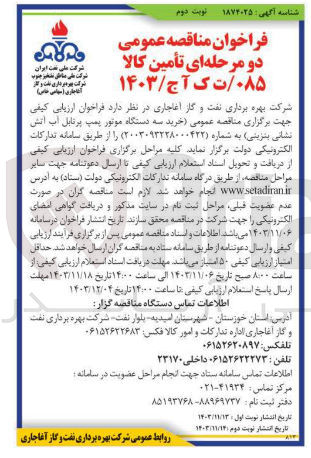 شناسه آگهی: ۱۸۷۴۰۲۵
نوبت دوم
شرکت ملی نفت ایران
شرکت ملی مناطق نفتخیز جنوب
شرکت بهره برداری نفت و گاز
آغاجاری (سهامی خاص)
فراخوان مناقصه عمومی
دو مرحله‌ای تأمین کالا
۰۸۵/ت ک آ ج/۱۴۰۳
شرکت بهره برداری نفت و گاز آغاجاری در نظر دارد فراخوان ارزیابی کیفی
جهت برگزاری مناقصه عمومی (خرید سه دستگاه موتور پمپ پرتابل آب آتش
نشانی بنزینی) به شماره (۲۰۰۳۰۹۳۲۲۸۰۰۰۴۲۲) را از طریق سامانه تدارکات
الکترونیکی دولت برگزار نماید. کلیه مراحل برگزاری فراخوان ارزیابی کیفی
از دریافت و تحویل اسناد استعلام ارزیابی کیفی تا ارسال دعوتنامه جهت سایر
مراحل مناقصه، از طریق درگاه سامانه تدارکات الکترونیکی دولت (ستاد) به آدرس
www.setadiran.ir انجام خواهد شد. لازم است مناقصه گران در صورت
عدم عضویت قبلی، مراحل ثبت نام در سایت مذکور و دریافت گواهی امضای
الکترونیکی را جهت شرکت در مناقصه محقق سازند. تاریخ انتشار فراخوان در سامانه
۱۴۰۳/۱۱/۰۶ می‌باشد. اطلاعات و اسناد مناقصه عمومی پس از برگزاری فرآیند ارزیابی
کیفی و ارسال دعوتنامه از طریق سامانه ستاد به مناقصه گران ارسال خواهد شد. حداقل
امتیاز ارزیابی کیفی ۵۰ امتیاز می‌باشد. مهلت دریافت اسناد استعلام ارزیابی کیفی: از
ساعت ۸:۰۰ صبح تاریخ ۱۴۰۳/۱۱/۰۶ الی ساعت ۱۴:۰۰ تاریخ ۱۴۰۳/۱۱/۱۸ مهلت
ارسال پاسخ استعلام ارزیابی کیفی: تا ساعت ۱۴:۰۰ تاریخ ۱۴۰۳/۱۲/۰۴
اطلاعات تماس دستگاه مناقصه گزار:
آدرس: استان خوزستان - شهرستان امیدیه- بلوار نفت- شرکت بهره برداری نفت
و گاز آغاجاری اداره تدارکات و امور کالا فکس: ۰۶۱۵۲۶۲۲۶۸۳
تلفکس: ۰۶۱۵۲۶۲۰۸۹۷
تلفن: ۰۶۱۵۳۶۲۲۲۷۳ داخلی ۲۳۱۷۰
اطلاعات تماس سامانه ستاد جهت انجام مراحل عضویت در سامانه:
مرکز تماس: ۴۱۹۳۴-۰۲۱
دفتر ثبت نام: ۸۸۹۶۹۷۳۷-۸۵۱۹۳۷۶۸
تاریخ انتشار نوبت اول: ۱۴۰۳/۱۱/۱۳
تاریخ انتشار نوبت دوم: ۱۴۰۳/۱۱/۱۴
روابط عمومی شرکت بهره برداری نفت و گاز آغاجاری